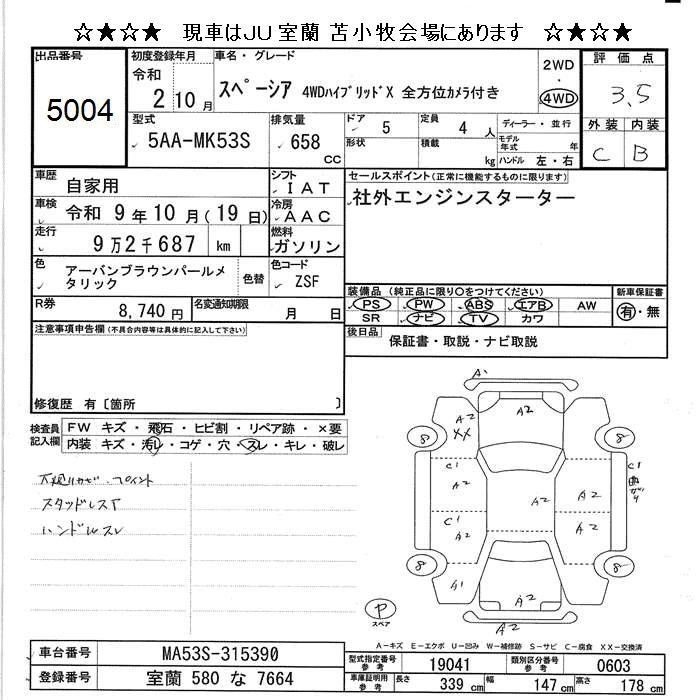 ☆★☆★ 現車はJU室蘭 苫小牧会場にあります ☆★☆★
出品番号 5004
初度登録年月 令和 2 10 月
車名・グレード スペーシア 4WDハイブリッドX 全方位カメラ付き
2WD ・ 4WD
評価点 3.5
外装 C 内装 B
型式 5AA-MK53S
排気量 658 CC
ドア 5 定員 4 人
形状 積載 kg
ディーラー・並行
モデル年式 年
ハンドル 左・右
車歴 自家用
シフト IAT
セールスポイント(正常に機能するものに限ります)
社外エンジンスターター
車検 令和 9 年 10 月 (19 日)
冷房 AAC
走行 9万2千687 km
燃料 ガソリン
色 アーバンブラウンパールメタリック 色替
色コード ZSF
装備品 (純正品に限り○をつけてください)
PS PW ABS エアB AW
SR ナビ TV カワ
新車保証書 有・無
R券 8,740 円
名変通知期限 月 日
後日品 保証書・取説・ナビ取説
注意事項申告欄(不具合内容等は具体的に記入して下さい)
修復歴 有 [箇所 ]
検査員記入欄
FW キズ ・ 飛石 ・ ヒビ割 ・ リペア跡 ・ ×要
内装 キズ ・ 汚レ ・ コゲ ・ 穴 ・ スレ ・ キレ ・ 破レ
スタッドレスT
ハンドルスレ
A1
A2
A2 XX
8 8
C1 A2 C1
A2 A2
C1 A2 A2
8 8
A1 A2 A2
A2
P スペア
A-キズ E-エクボ U-凹み W-補修跡 S-サビ C-腐食 XX-交換済
車台番号 MA53S-315390
登録番号 室蘭 580 な 7664
型式指定番号 参考 19041 類別区分番号 参考 0603
車庫証明用 参考 長さ 339 cm 幅 147 cm 高さ 178 cm